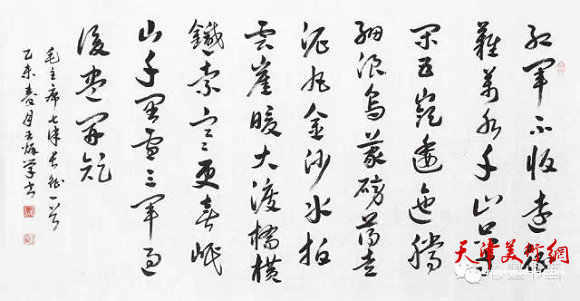 红軍不怕遠征
難萬水千山只等
闲五嶺逶迤騰
細浪烏蒙磅礴走
泥丸金沙水拍
雲崖暖大渡橋橫
鐵索寒更喜岷
山千里雪三軍過
後盡開顏
毛主席七律長征一首
乙未春月
天津美術網